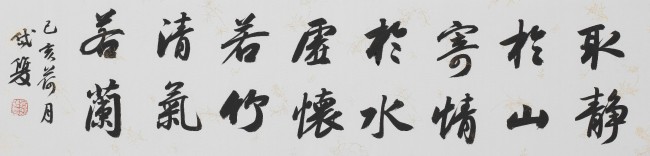 取静
於山
寄情
於水
虛懷
若竹
清氣
若蘭
己亥荷月